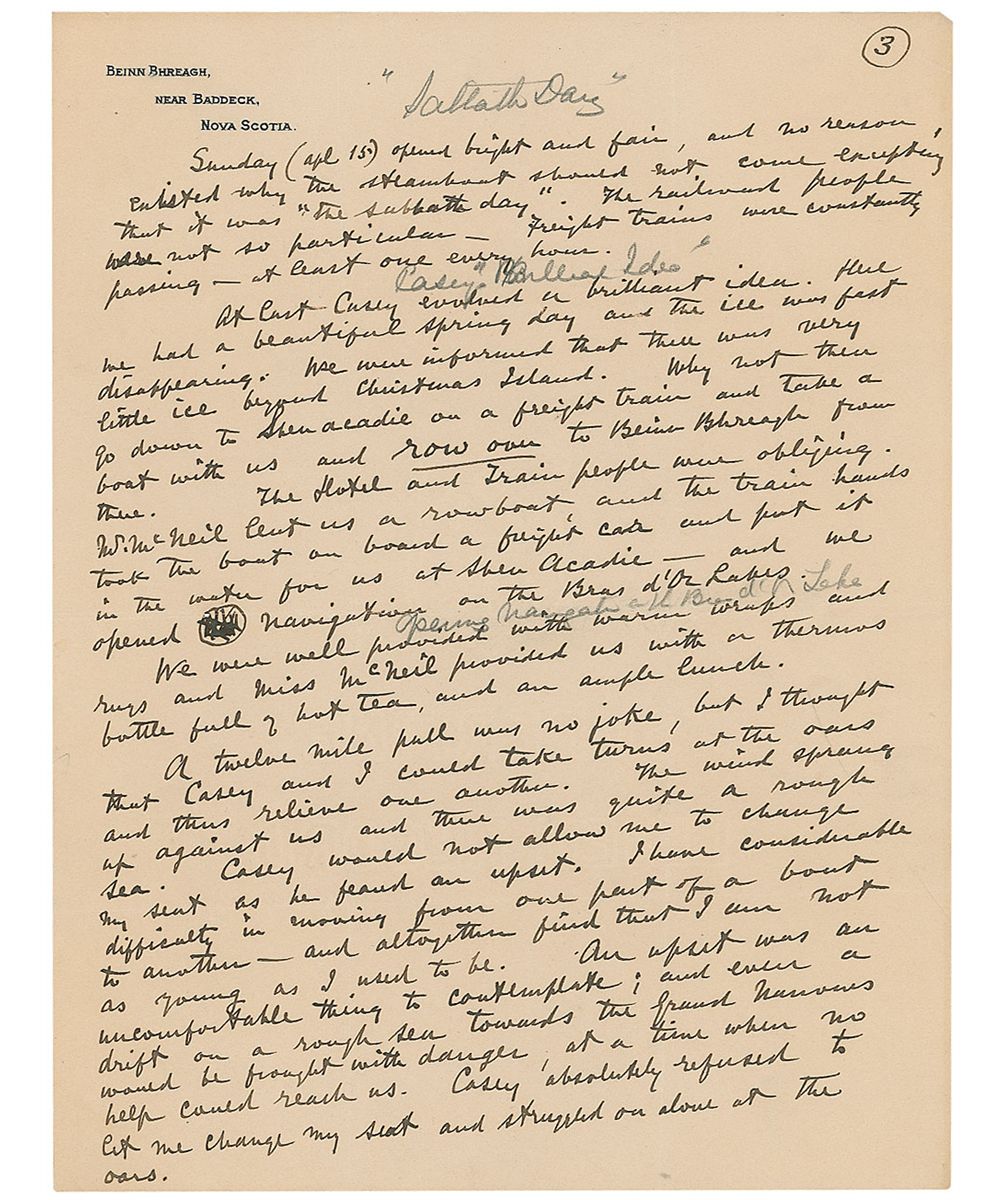 3
BEINN BHREAGH,
NEAR BADDECK,
NOVA SCOTIA.
"Sabbath Day"
Sunday (apl 15) opened bright and fair, and no reason
existed why the steamboat should not come excepting
that it was "the sabbath day". The railroad people
were not so particular — Freight trains were constantly
passing — at least one every hour.
Casey's "Brilliant Idea"
At last Casey evolved a brilliant idea. Here
we had a beautiful spring day and the ice was fast
disappearing. We were informed that there was very
little ice beyond Christmas Island. Why not then
go down to Shenacadie on a freight train and take a
boat with us and row over to Beinn Bhreagh from
there. The Hotel and Train people were obliging.
Mr. McNeil lent us a rowboat, and the train hands
took the boat on board a freight car and put it
in the water for us at Shen Acadie — and we
opened navigation on the Bras d'Or Lakes.
Opening Navigation Bras d'Or Lake
We were well provided with warm wraps and
rugs and Miss McNeil provided us with a thermos
bottle full of hot tea, and an ample lunch.
A twelve mile pull was no joke, but I thought
that Casey and I could take turns at the oars
and thus relieve one another. The wind sprang
up against us and there was quite a rough
sea. Casey would not allow me to change
my seat as he feared an upset. I have considerable
difficulty in moving from one part of a boat
to another — and altogether find that I am not
as young as I used to be. An upset was an
uncomfortable thing to contemplate; and even a
drift on a rough sea towards the Grand Narrows
would be fraught with danger, at a time when no
help could reach us. Casey absolutely refused to
let me change my seat and struggled on alone at the
oars.